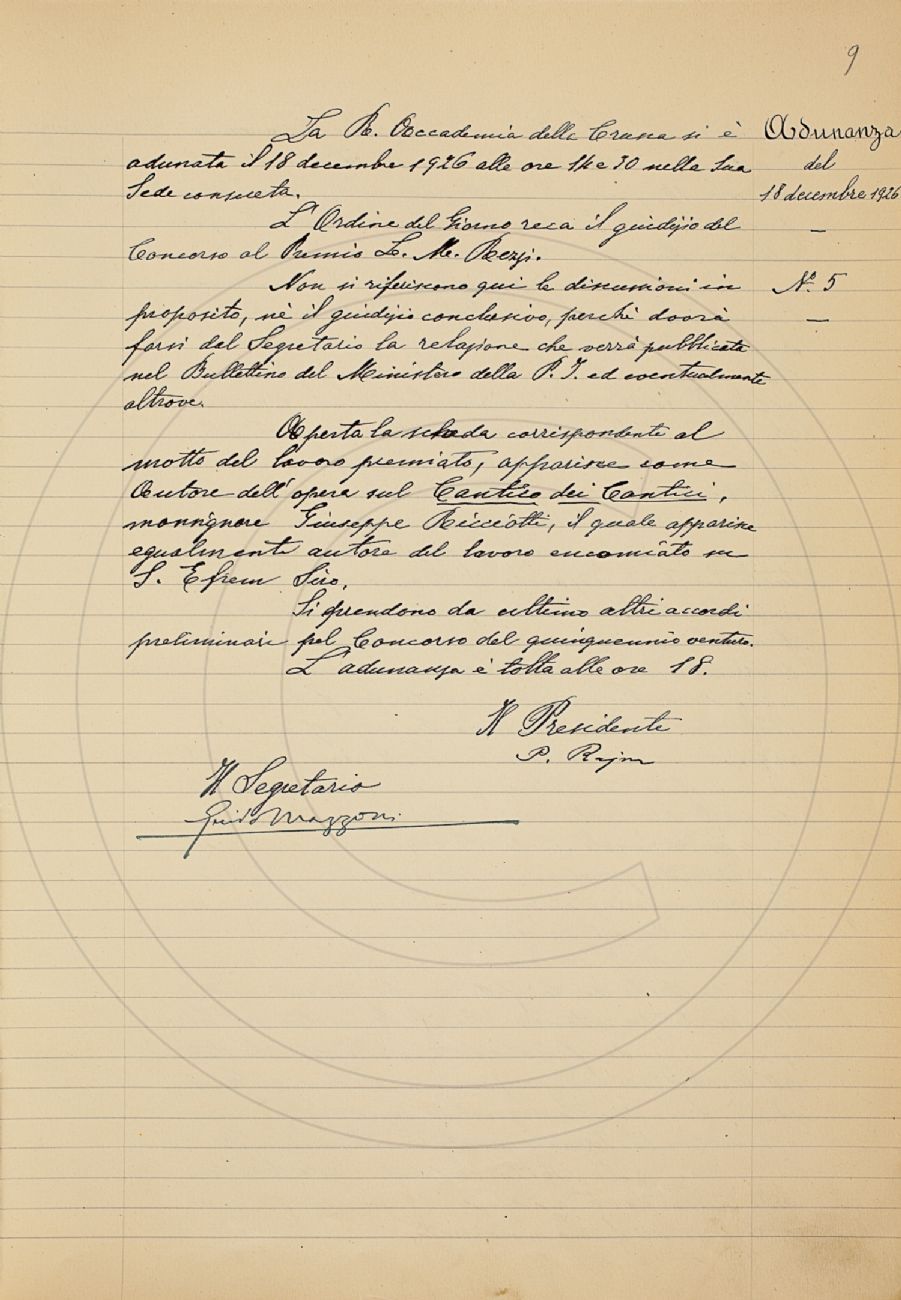 9
La R. Accademia della Crusca si è
adunata il 18 decembre 1926 alle ore 14 e 30 nella sua
Sede consueta.
L'Ordine del Giorno reca il giudizio del
Concorso al Premio L. M. Rezzi.
Non si riferiscono qui le discussioni in
proposito, nè il giudizio conclusivo, perchè dovrà
farsi dal Segretario la relazione che verrà pubblicata
nel Bullettino del Ministero della P. I. ed eventualmente
altrove.
Aperta la scheda corrispondente al
motto del lavoro premiato, apparisce come
Autore dell'opera sul Cantico dei Cantici,
monsignore Giuseppe Ricciotti, il quale apparisce
egualmente autore del lavoro encomiato su
S. Efrem Siro.
Si prendono da ultimo altri accordi
preliminari pel Concorso del quinquennio venturo.
L'adunanza è tolta alle ore 18.
Il Presidente
P. Rajna
Il Segretario
Guido Mazzoni
Adunanza
del
18 decembre 1926
—
N.º 5
—